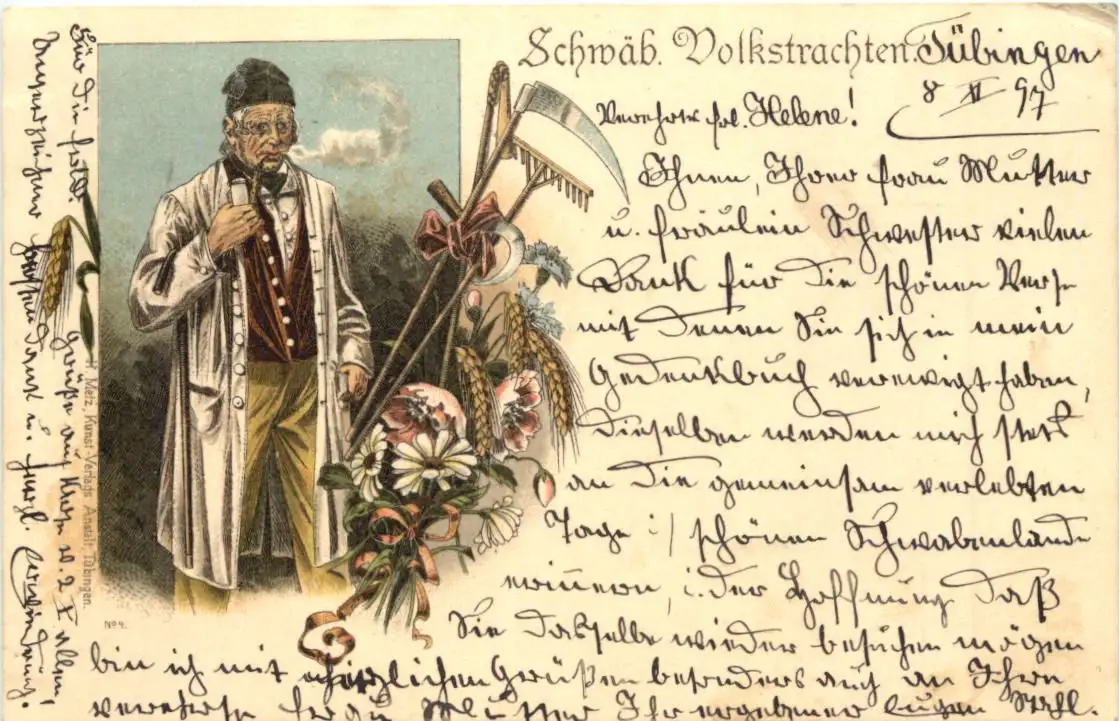 Schwäb. Volkstrachten.
Tübingen
8 XI 97
Verehrte Frl. Helene!
Ihnen, Ihrer Frau Mutter
u. Fräulein Schwester vielen
Dank für die schönen Verse
mit denen Sie sich in mein
Gedenkbuch verewigt haben,
dieselben werden mich stets
an die gemeinsam verlebten
Tage i/ schönen Schwabenlande
erinnern, i. der Hoffnung daß
Sie dasselbe wieder besuchen mögen
bin ich mit herzlichen Grüßen besonders auch an Ihre
verehrte Frau Mutter Ihr ergebener Eugen
Für die
besten Dank u. herzl.
Grüße
H. Metz, Kunst-Verlags Anstalt, Tübingen.
No 4.